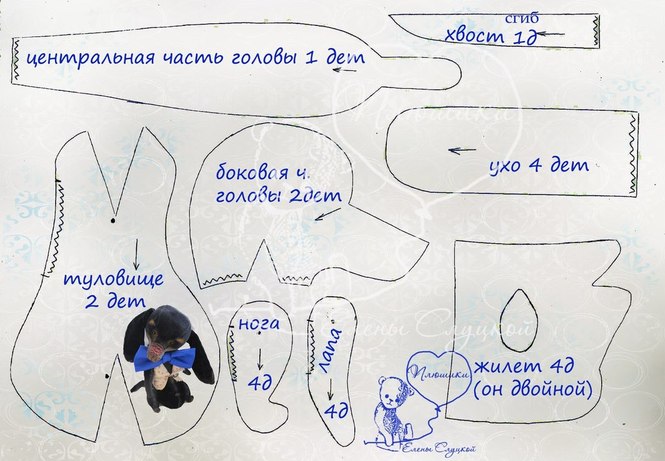 центральная часть головы 1 дет
сгиб
хвост 1д
Плюшики
боковая ч.
головы 2дет
ухо 4 дет
туловище
2 дет
нога
4д
лапа
4д
Елены Слуцкой
жилет 4д
(он двойной)
Плюшики
Елены Слуцкой